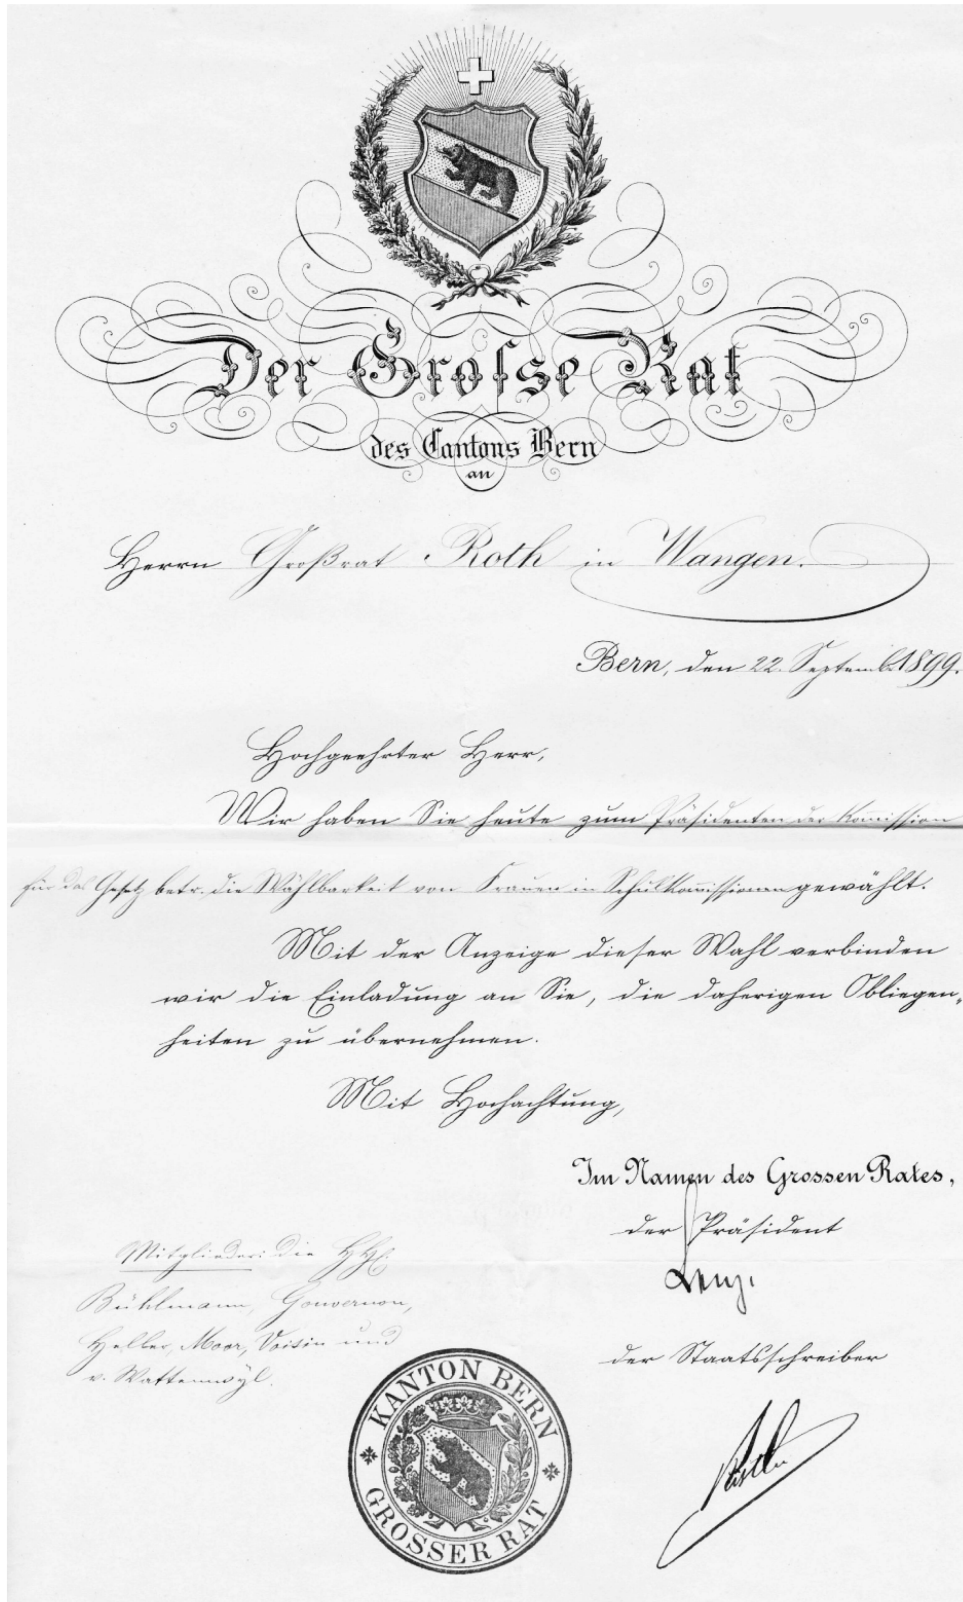 Der Grosse Rat
des Cantons Bern
an
Herrn Großrat Roth in Wangen.
Bern, den 22. Septemb. 1899.
Hochgeehrter Herr,
Wir haben Sie heute zum Präsidenten der Kommission
für das Gesetz betr. die Wählbarkeit von Frauen in Schulkommissionen gewählt.
Mit der Anzeige dieser Wahl verbinden
wir die Einladung an Sie, die daherigen Obliegen-
heiten zu übernehmen.
Mit Hochachtung,
Im Namen des Grossen Rates,
der Präsident
Lenz.
der Staatsschreiber
Mitglieder: die HH.
Bühlmann, Gouvernon,
Heller, Moor, Voisin und
v. Wattenwyl.
KANTON BERN
GROSSER RAT